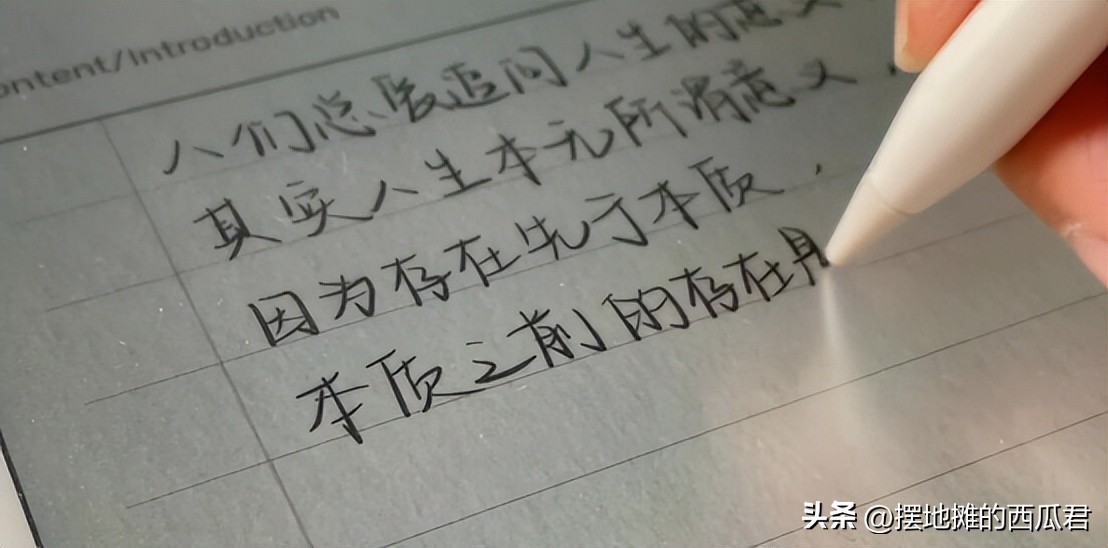 ontent/Introduction
人们总爱追问人生的意义
其实人生本无所谓意义,
因为存在先于本质,
本质之前的存在是
头条 @摆地摊的西瓜君